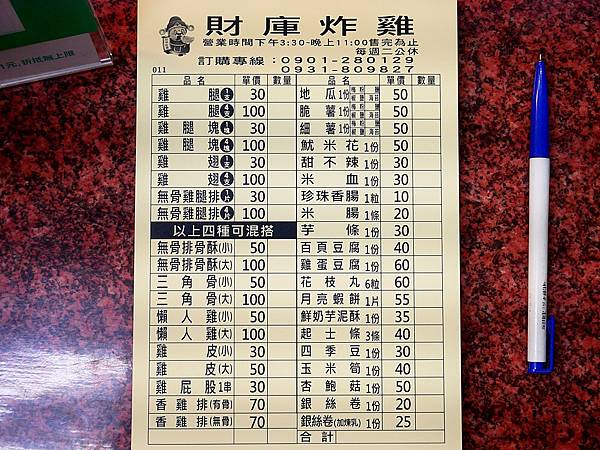 財庫炸雞
營業時間下午3:30-晚上11:00售完為止
每週二公休
訂購專線：0901-280129
0931-809827
011
品名 單價 數量 品名 單價 數量
雞腿 30 地瓜1份 50
雞腿 100 脆薯1份 50
雞腿塊 30 細薯1份 50
雞腿塊 100 魷米花1份 50
雞翅 30 甜不辣1份 30
雞翅 100 米血1份 30
無骨雞腿排 30 珍珠香腸1粒 10
無骨雞腿排 100 米腸1條 20
以上四種可混搭 芋條1份 30
無骨排骨酥(小) 50 百頁豆腐1份 40
無骨排骨酥(大) 100 雞蛋豆腐1份 60
三角骨(小) 50 花枝丸6粒 60
三角骨(大) 100 月亮蝦餅1片 55
懶人雞(小) 50 鮮奶芋泥酥1份 35
懶人雞(大) 100 起士條3條 40
雞皮(小) 30 四季豆1份 30
雞皮(大) 50 玉米筍1份 40
雞屁股1串 30 杏鮑菇1份 50
香雞排(有骨) 70 銀絲卷1份 20
香雞排(無骨) 70 銀絲卷(加煉乳)1份 25
合計
1元,折抵無上限